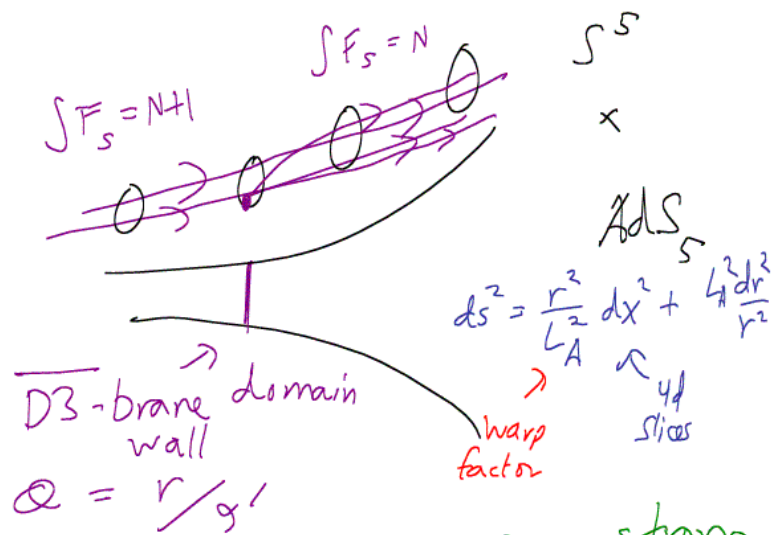 ∫F₅ = N
S⁵
∫F₅ = N+1
×
AdS₅
ds² = r²/L_A² dx² + L_A² dr²/r²
4d
slices
warp
factor
D3-brane domain
wall
r/α'